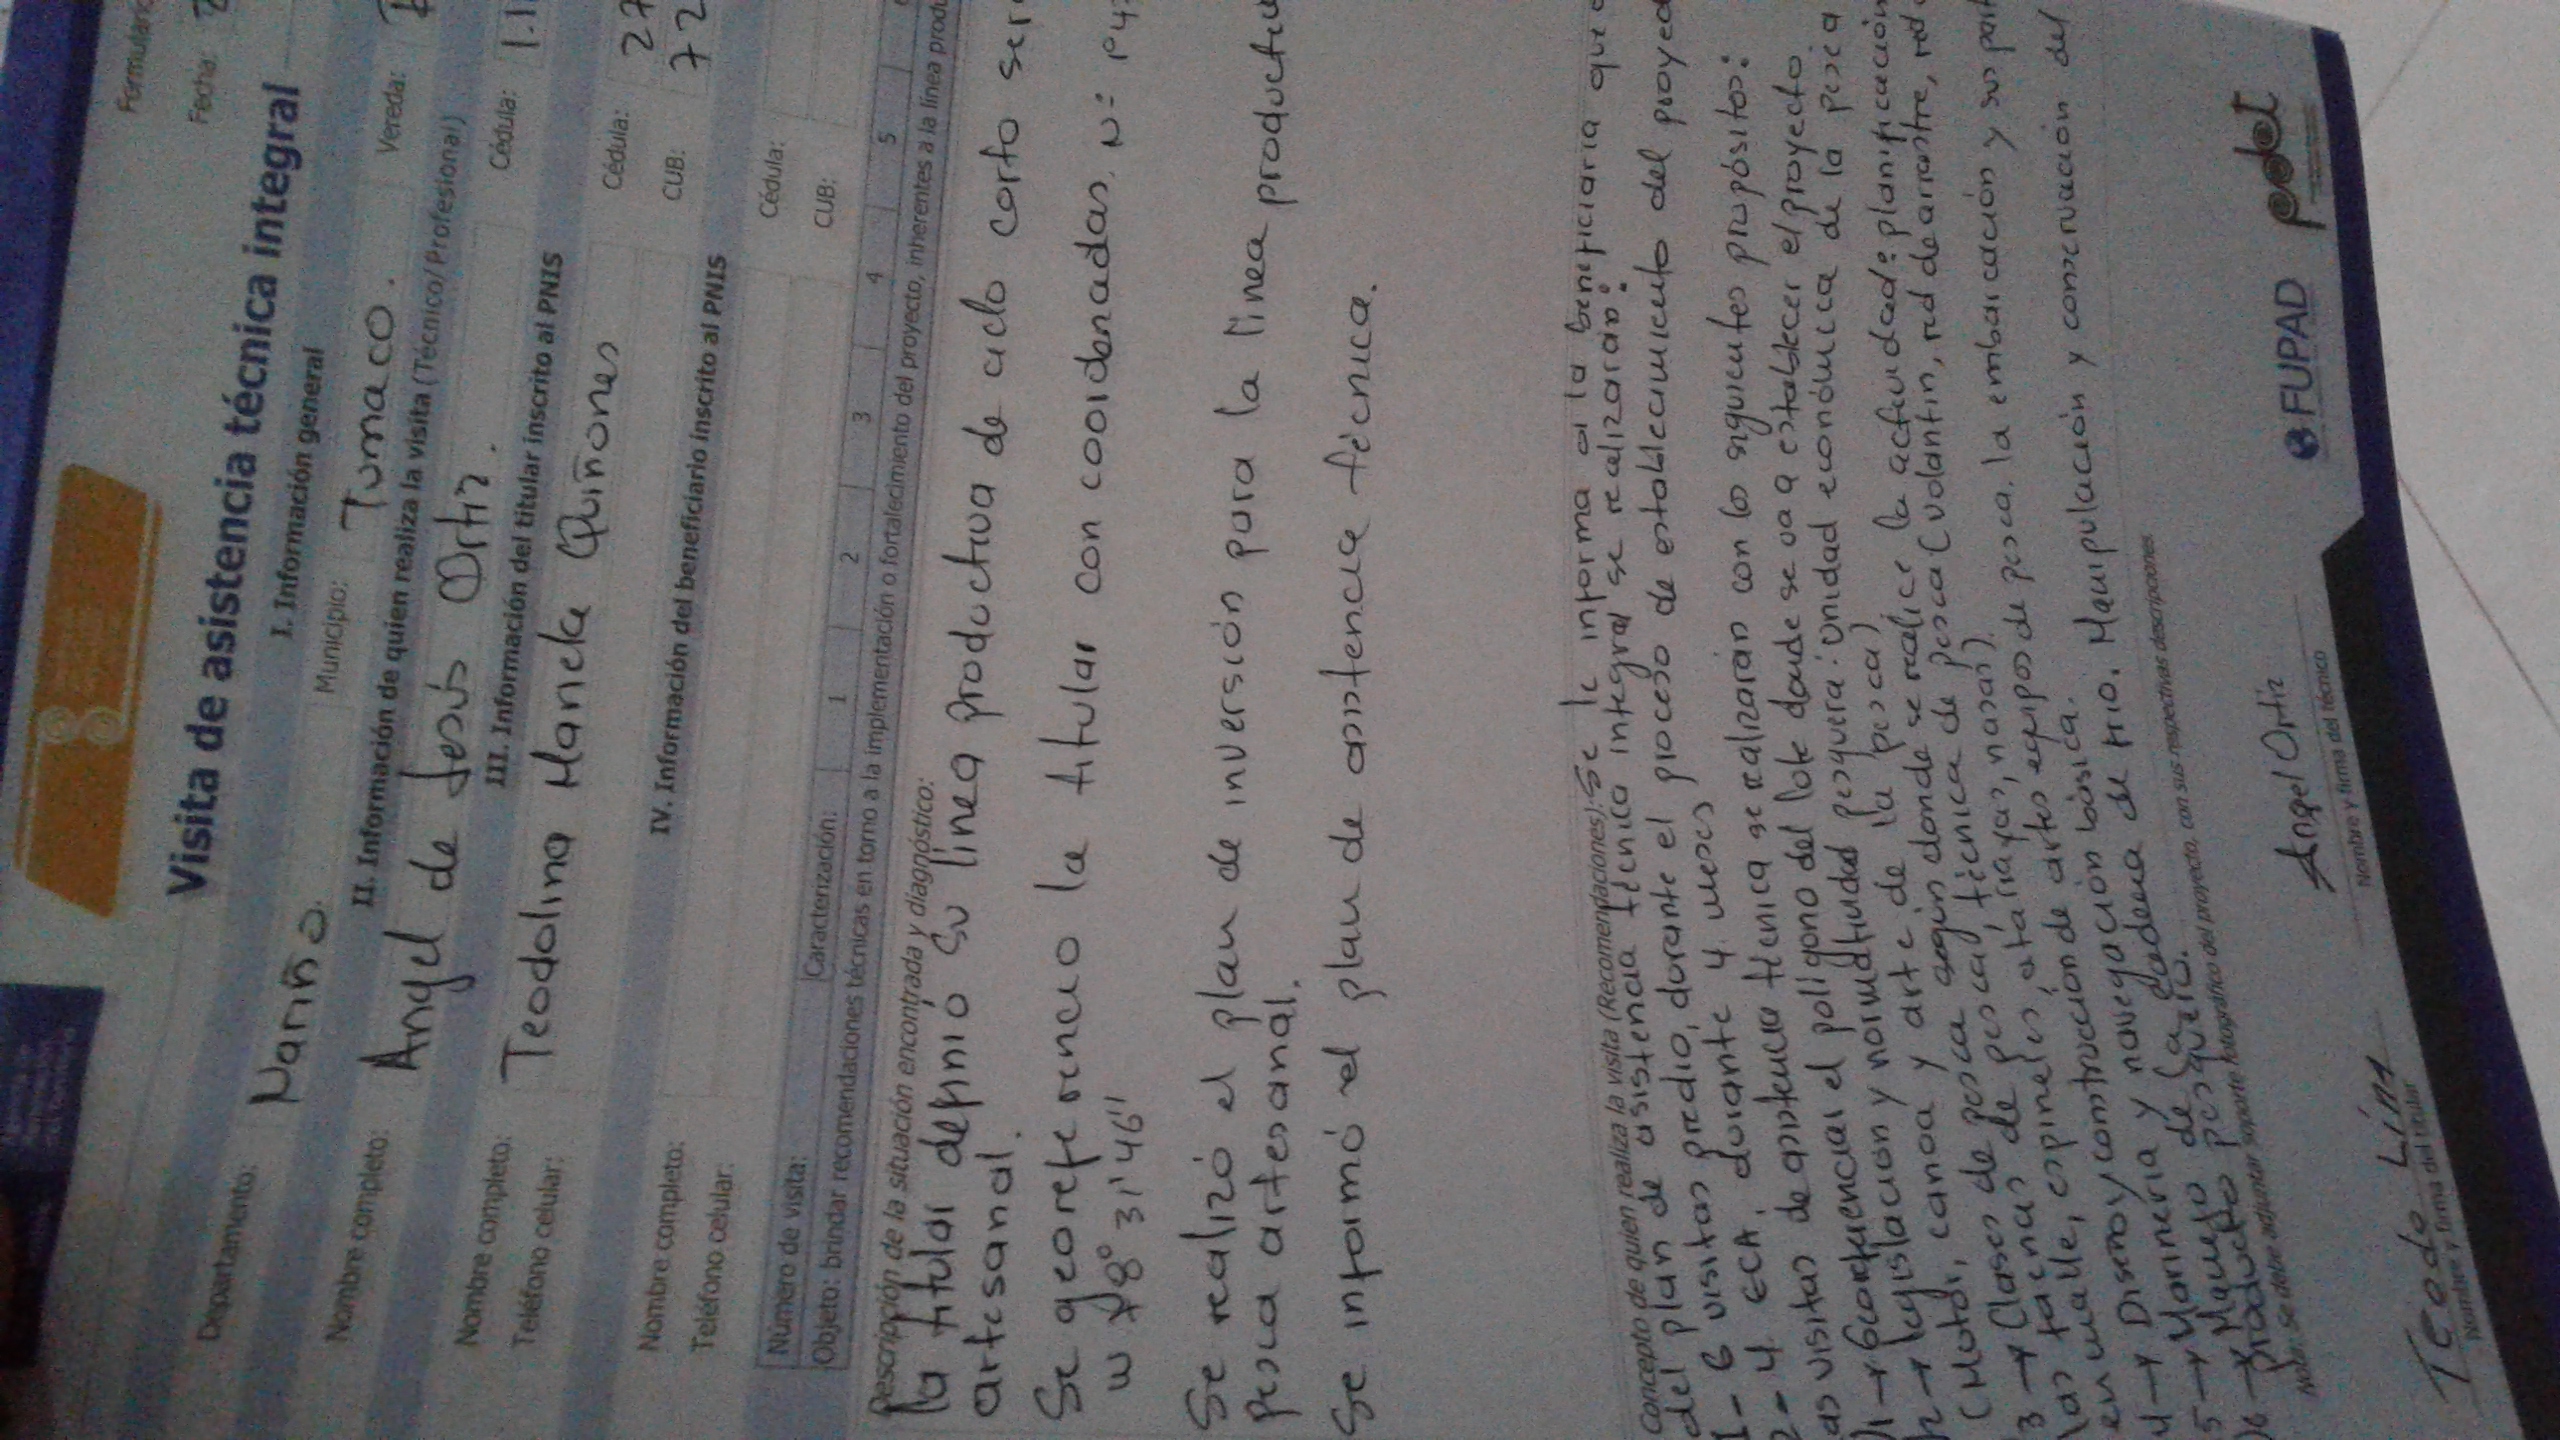 Formulario
Fecha:
Visita de asistencia técnica integral
I. Información general
Departamento: Nariño. Municipio: Tumaco. Vereda:
II. Información de quien realiza la visita (Técnico/Profesional)
Nombre completo: Angel de Jesús Ortiz. Cédula: 1.1
III. Información del titular inscrito al PNIS
Nombre completo: Teodolina Mariela Quiñones Cédula: 27
Teléfono celular: CUB: 72
IV. Información del beneficiario inscrito al PNIS
Nombre completo: Cédula:
Teléfono celular: CUB:
Número de visita: Caracterización: 1 2 3 4 5
Objeto: brindar recomendaciones técnicas en torno a la implementación o fortalecimiento del proyecto, inherentes a la línea produ
Descripción de la situación encontrada y diagnóstico:
la titular definió su línea productiva de ciclo corto ser
artesanal.
Se georeferencio la titular con coordenadas, N: 1°4
W 78° 31' 46"
Se realizó el plan de inversión para la línea productiv
pesca artesanal.
Se informó el plan de asistencia técnica.
Concepto de quien realiza la visita (Recomendaciones): Se le informa a la beneficiaria que
del plan de asistencia técnica integral se realizarán:
1- 6 visitas predio, durante el proceso de establecimiento del proyec
2- 4 ECA, durante 4 meses
as visitas de asistencia técnica se realizarán con los siguientes propósitos:
1→ Georeferenciar el polígono del lote donde se va a establecer el proyecto
2→ legislación y normatividad pesquera: Unidad económica de la pesca
(Motor, canoa y arte de la pesca)
3→ Clases de pesca según donde se realice la actividad: planificación
las faenas de pesca, técnica de pesca (volantin, red de arrastre, red
enmalle, espineles, atarrayas, nasas)
4→ Diseño y construcción de artes equipos de pesca. la embarcación y sus part
5→ Marinería y navegación básica.
6→ Manejo de la cadena de frío. Manipulación y conservación del
producto pesquero.
Nota: se debe adjuntar soporte fotográfico del proyecto, con sus respectivas descripciones
Teodo Lina
Nombre y firma del titular
Angel Ortiz
Nombre y firma del técnico
FUPAD
pdet